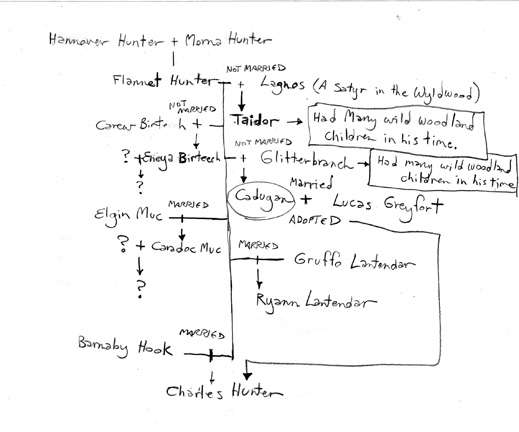 Hannover Hunter + Morna Hunter
NOT MARRIED
Flannet Hunter + Lagnos (A Satyr in the Wyldwood)
NOT MARRIED
Carew Birtech + Taidor → Had Many wild woodland
children in his time.
NOT MARRIED
? + Eneya Birtech + Glitterbranch → Had many wild woodland
children in his time
?
Married
Cadugan + Lucas Greyfort
MARRIED
ADOPTED
Elgin Muc
? + Caradoc Muc
MARRIED
Gruffo Lantendar
?
Ryann Lantendar
MARRIED
Barnaby Hook
Charles Hunter